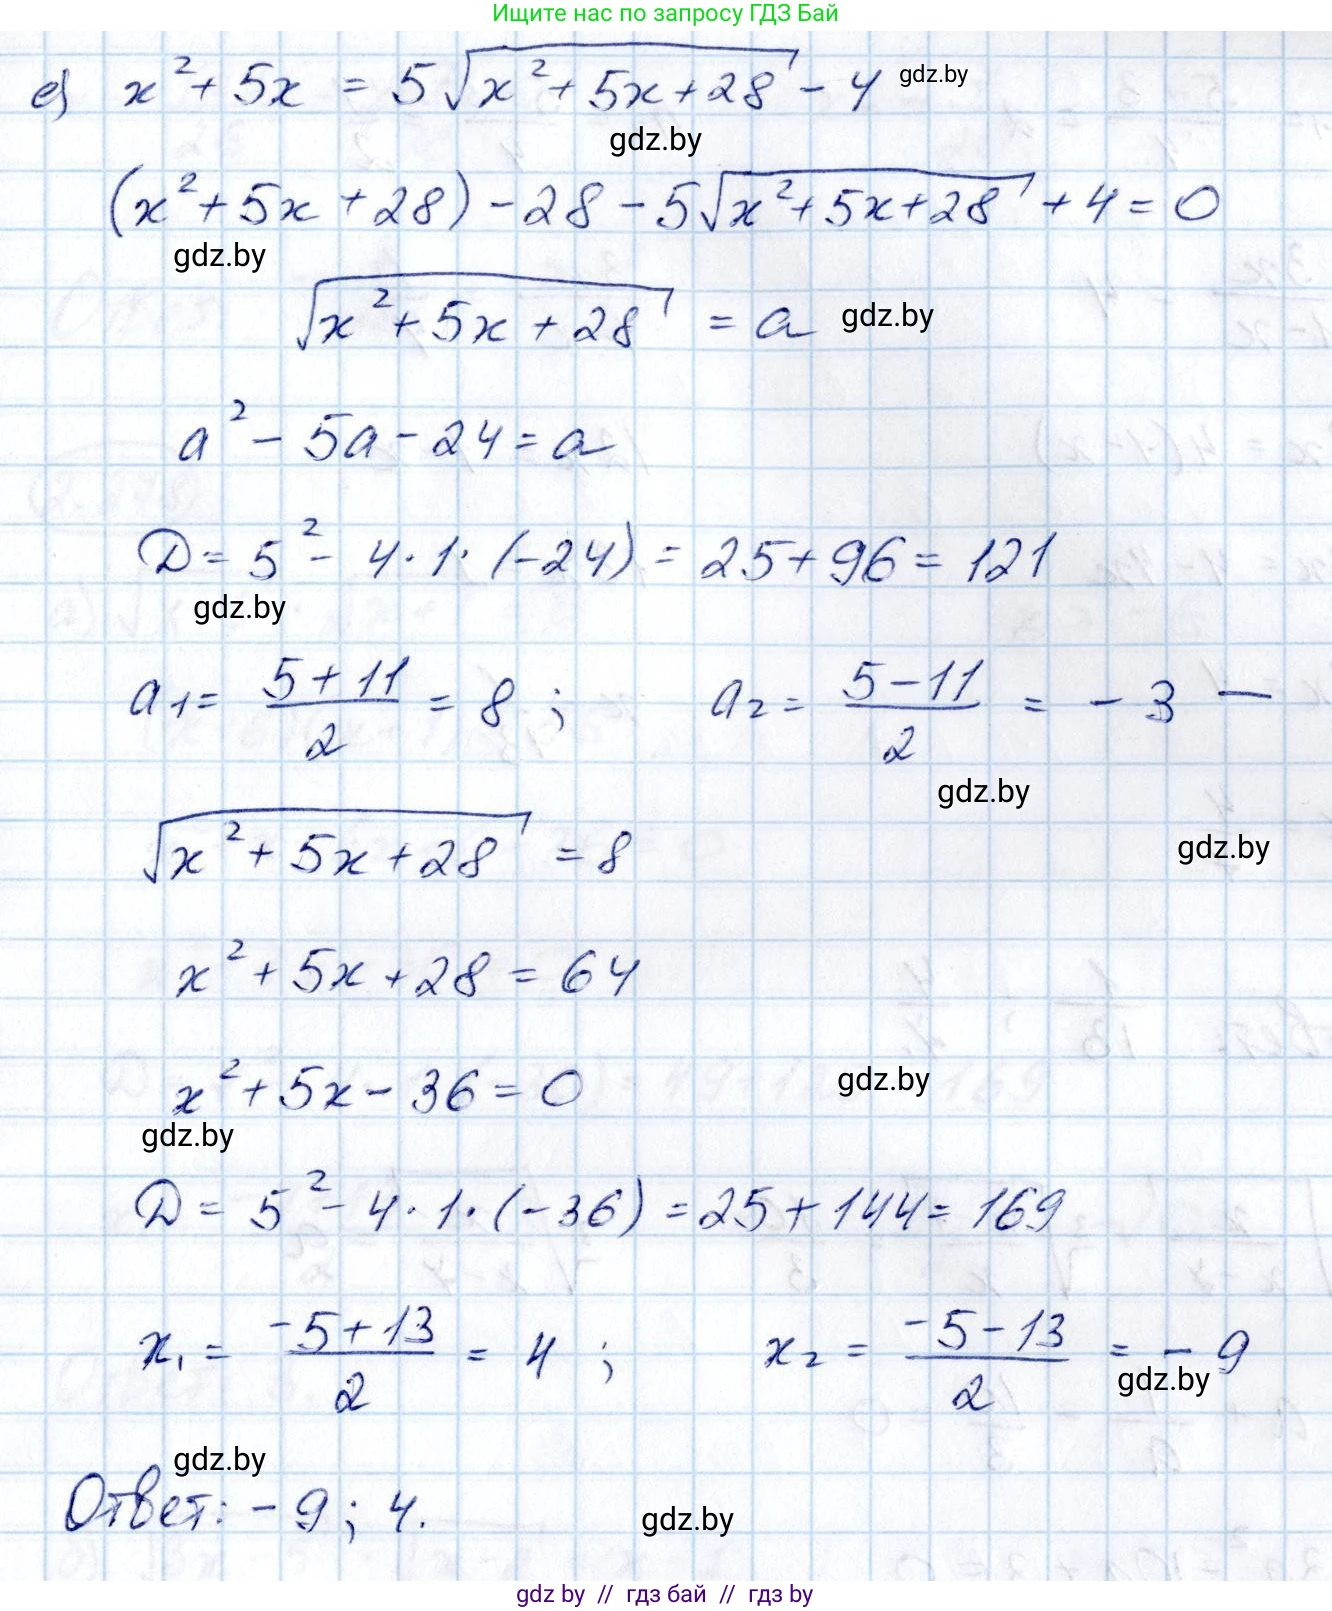 Ищите нас по запросу ГДЗ Бай
е) x² + 5x = 5√(x² + 5x + 28) - 4 gdz.by
gdz.by
(x² + 5x + 28) - 28 - 5√(x² + 5x + 28) + 4 = 0
gdz.by
√(x² + 5x + 28) = a gdz.by
a² - 5a - 24 = a
D = 5² - 4 · 1 · (-24) = 25 + 96 = 121
gdz.by
a₁ = (5 + 11)/2 = 8 ; a₂ = (5 - 11)/2 = -3 —
gdz.by
√(x² + 5x + 28) = 8 gdz.by
x² + 5x + 28 = 64
x² + 5x - 36 = 0 gdz.by
gdz.by
D = 5² - 4 · 1 · (-36) = 25 + 144 = 169
x₁ = (-5 + 13)/2 = 4 ; x₂ = (-5 - 13)/2 = -9
gdz.by
gdz.by
Ответ: -9 ; 4. gdz.by
gdz by // гдз бай // гдз by